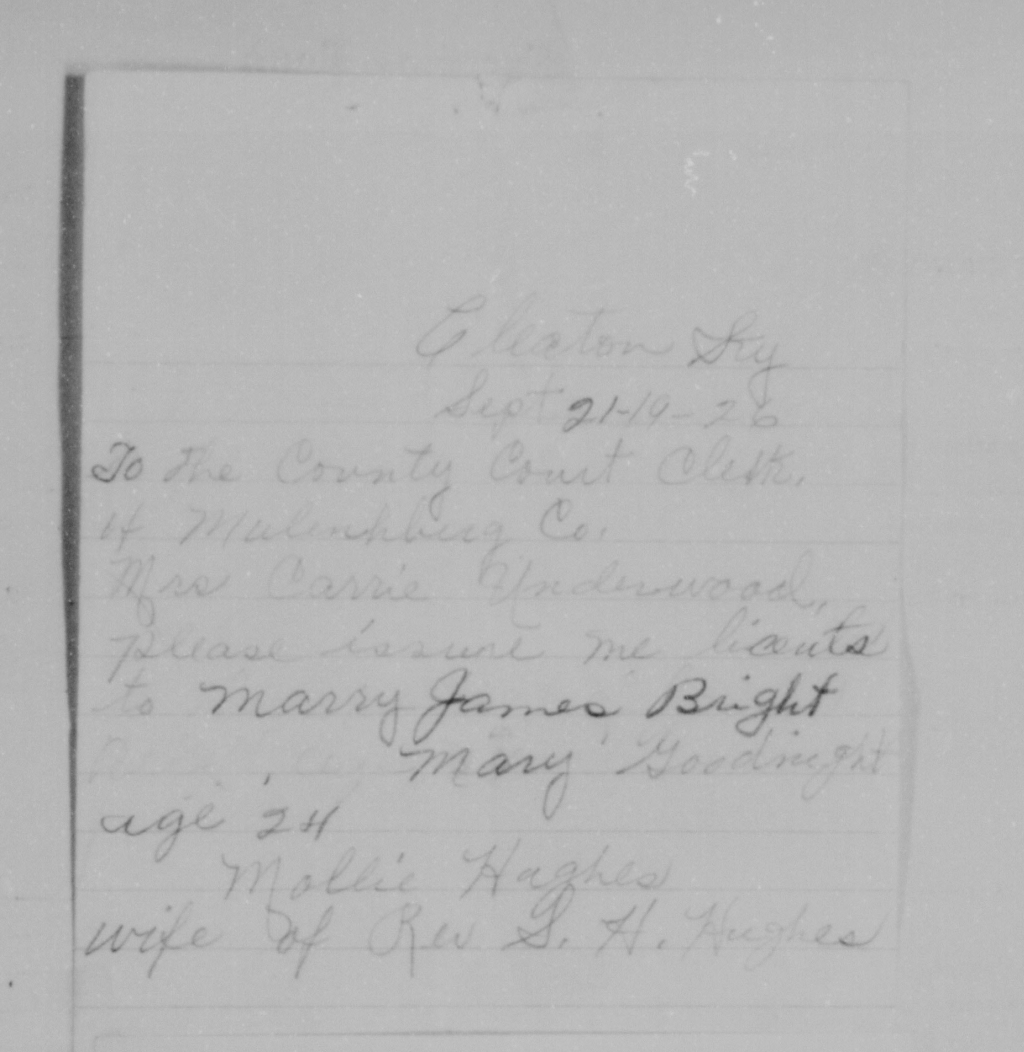 Cleaton Ky
Sept 21-19-26
To the County Court Clerk.
of Mulenhburg Co.
Mrs Carrie Underwood,
please issure me licents
to Marry James Bright
Mary Goodnight
age 24
Mollie Hughes
wife of Rev S. H. Hughes